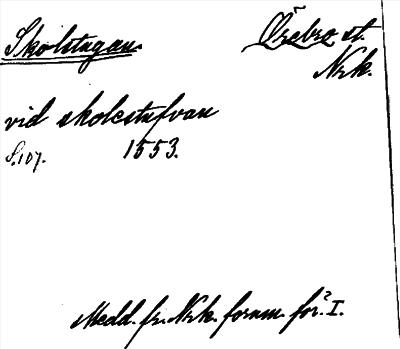 Skolstugan. Örebro st.
Nrk.
vid skolestufvan
S. 107. 1553.
Medd. fr. Nrk. fornm. för. I.